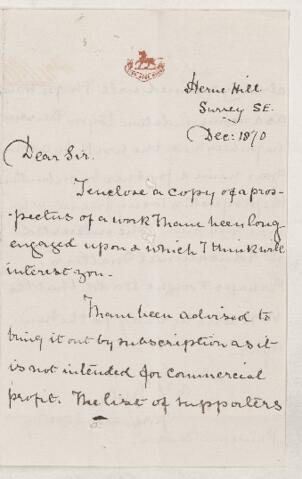 Herne Hill
Surrey SE.
Dec: 1870
Dear Sir.
I enclose a copy of a pros-
-pectus of a work I have been long
engaged upon & which I think will
interest you -
I have been advised to
bring it out by subscription as it
is not intended for commercial
profit. The list of supporters